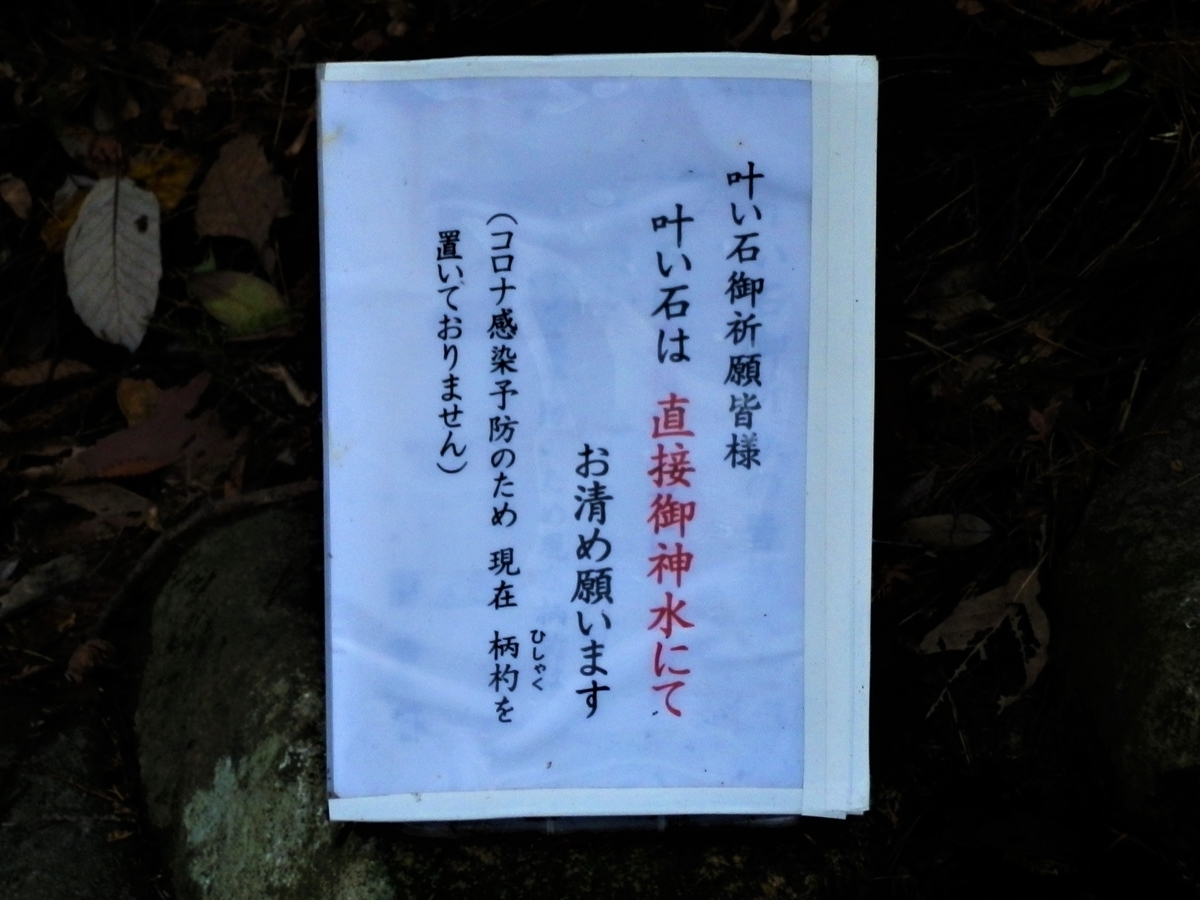 叶い石御祈願皆様
叶い石は 直接御神水にて
お清め願います
(コロナ感染予防のため 現在 柄杓を
ひしゃく
置いておりません)